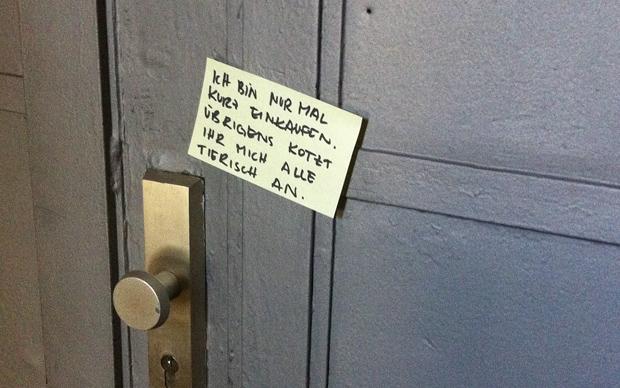 ICH BIN NUR MAL
KURZ EINKAUFEN.
ÜBRIGENS KOTZT
IHR MICH ALLE
TIERISCH AN.